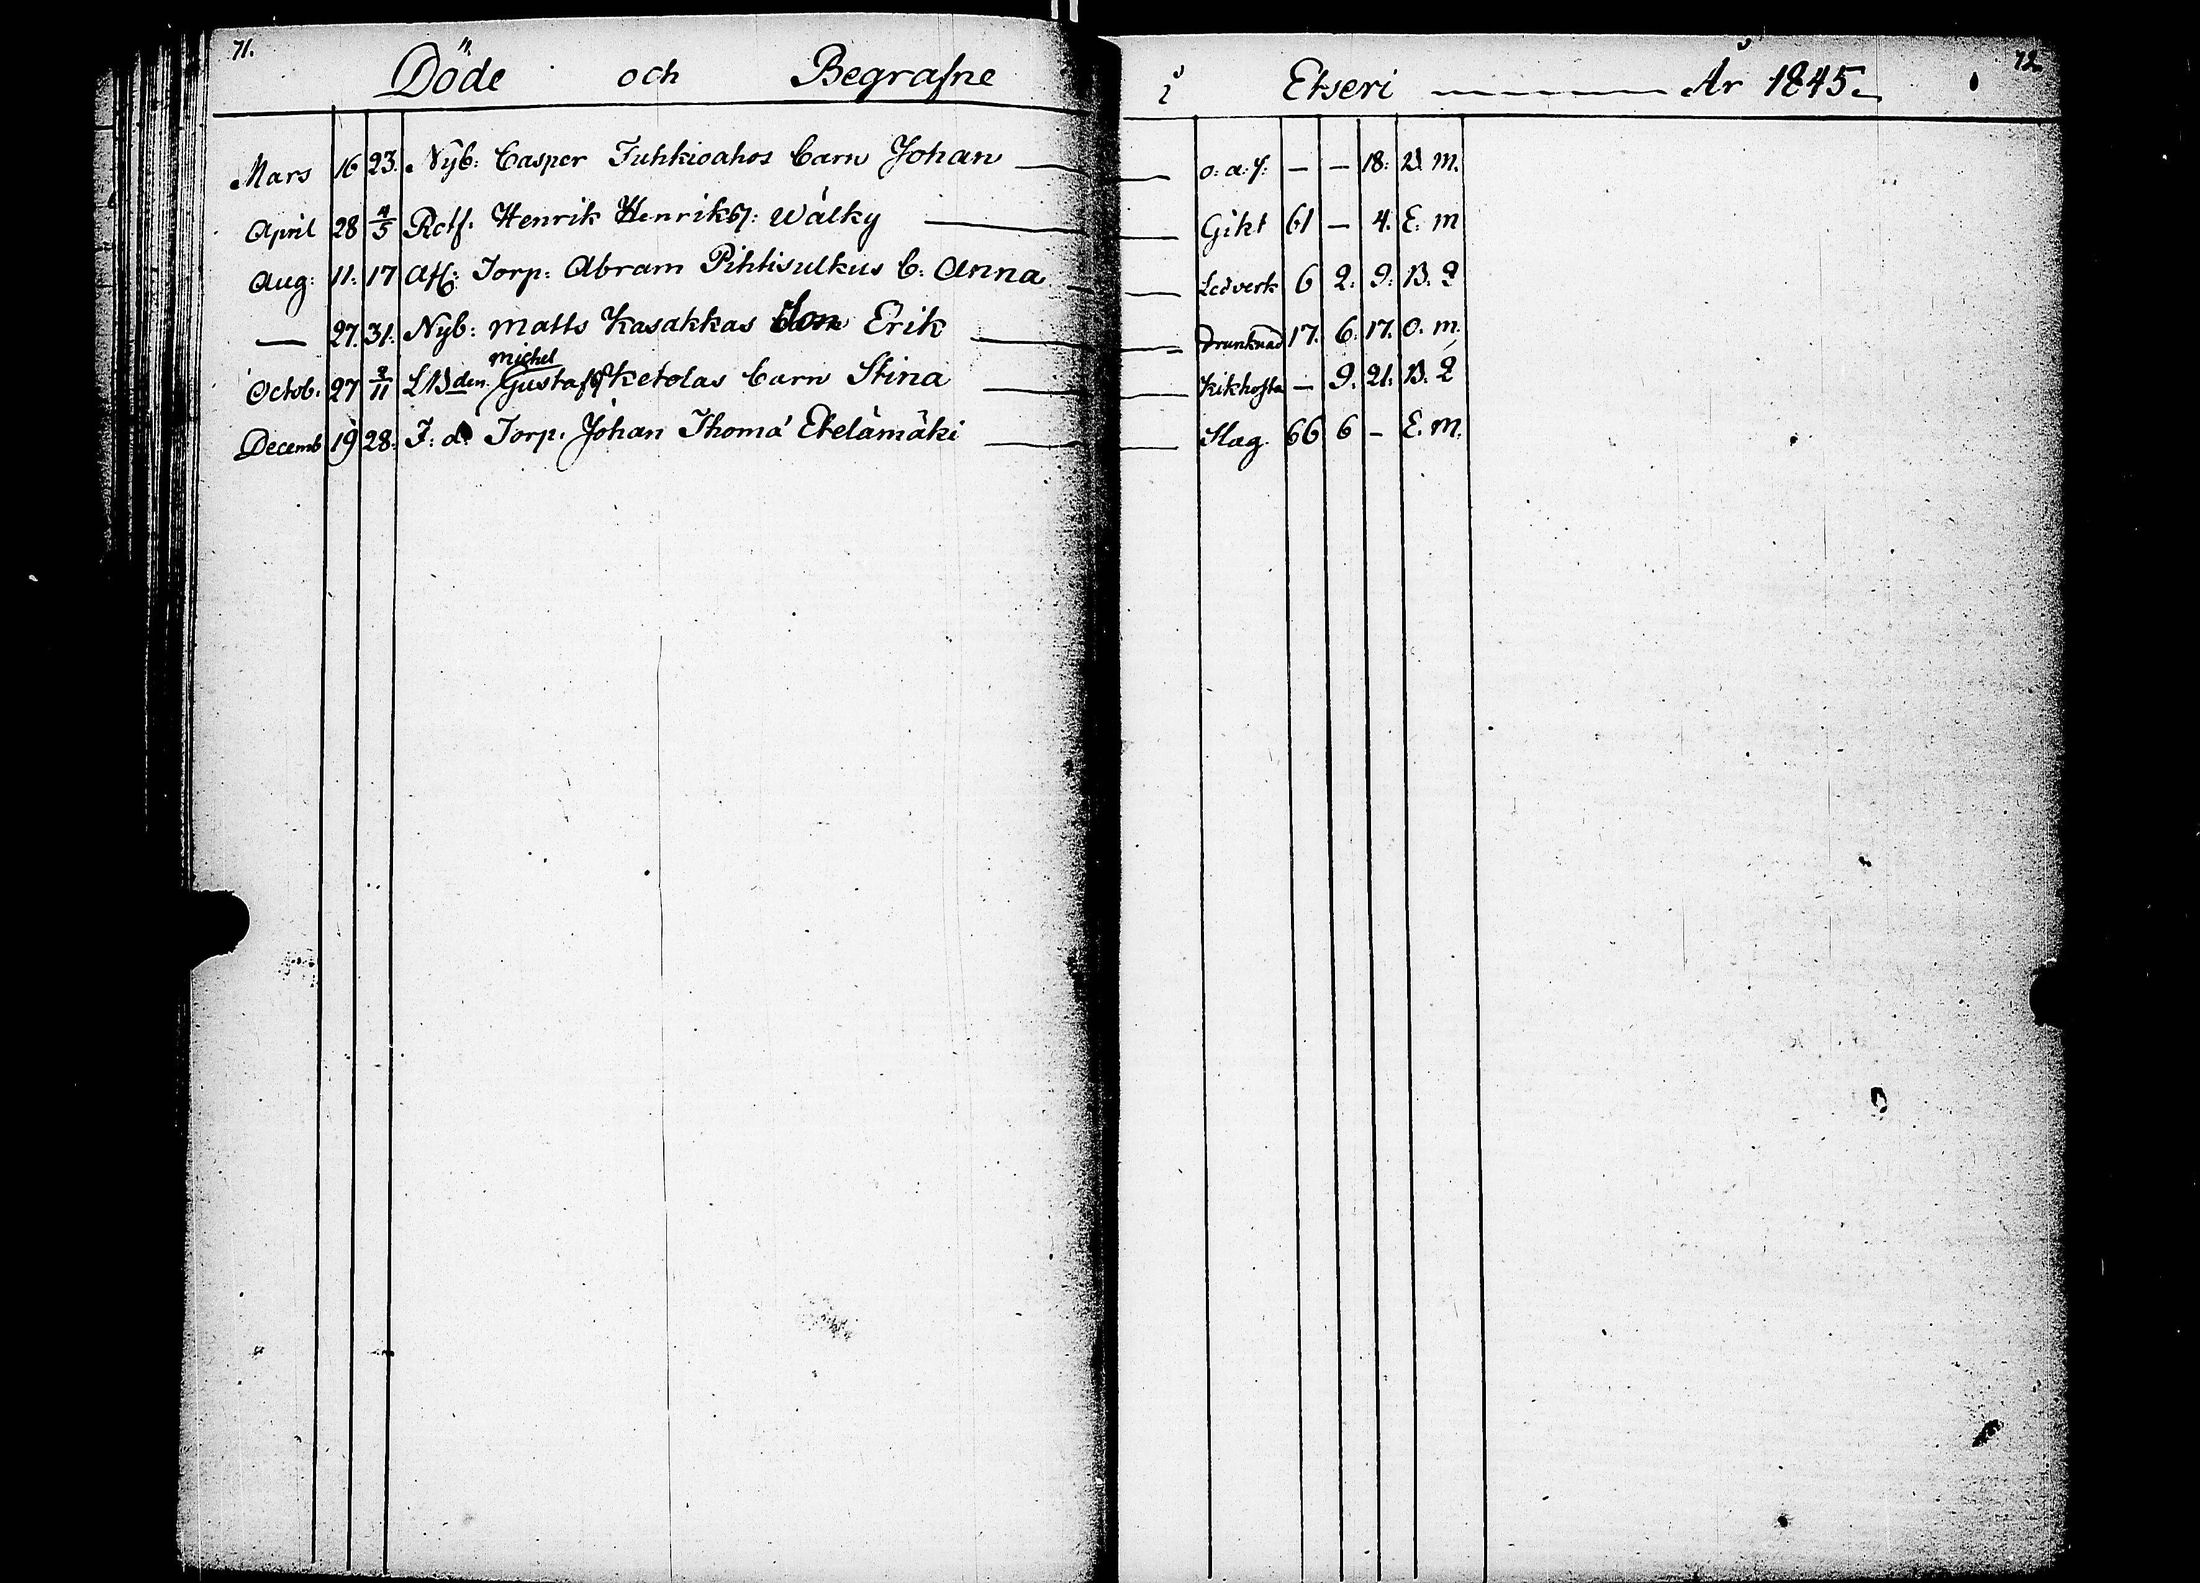 71.
Döde och Begrafne i Etseri År 1845.
72.
Mars 16 23. Nyb: Casper Tuhkioahos barn Johan o: a: s: — — 18: U. M.
April 28 4/5 Rotf. Henrik Henriks: Wälky Gikt 61 — 4. E. m
Aug: 11. 17 Afl: Torp: Abram Pihtisulkus b: Anna Ledverk 6 2. 9. B. Q
— 27. 31. Nyb: Matts Kasakkas Son Erik Drunknad 17. 6. 17. O. m.
Michel
Octob. 27 2/11 Gustafs Ketolas barn Stina Kikhosta — 9. 21. B. Q
Decemb 19 28. F: d. Torp. Johan Thomä Etelämäki Slag. 66 6 — E. M.